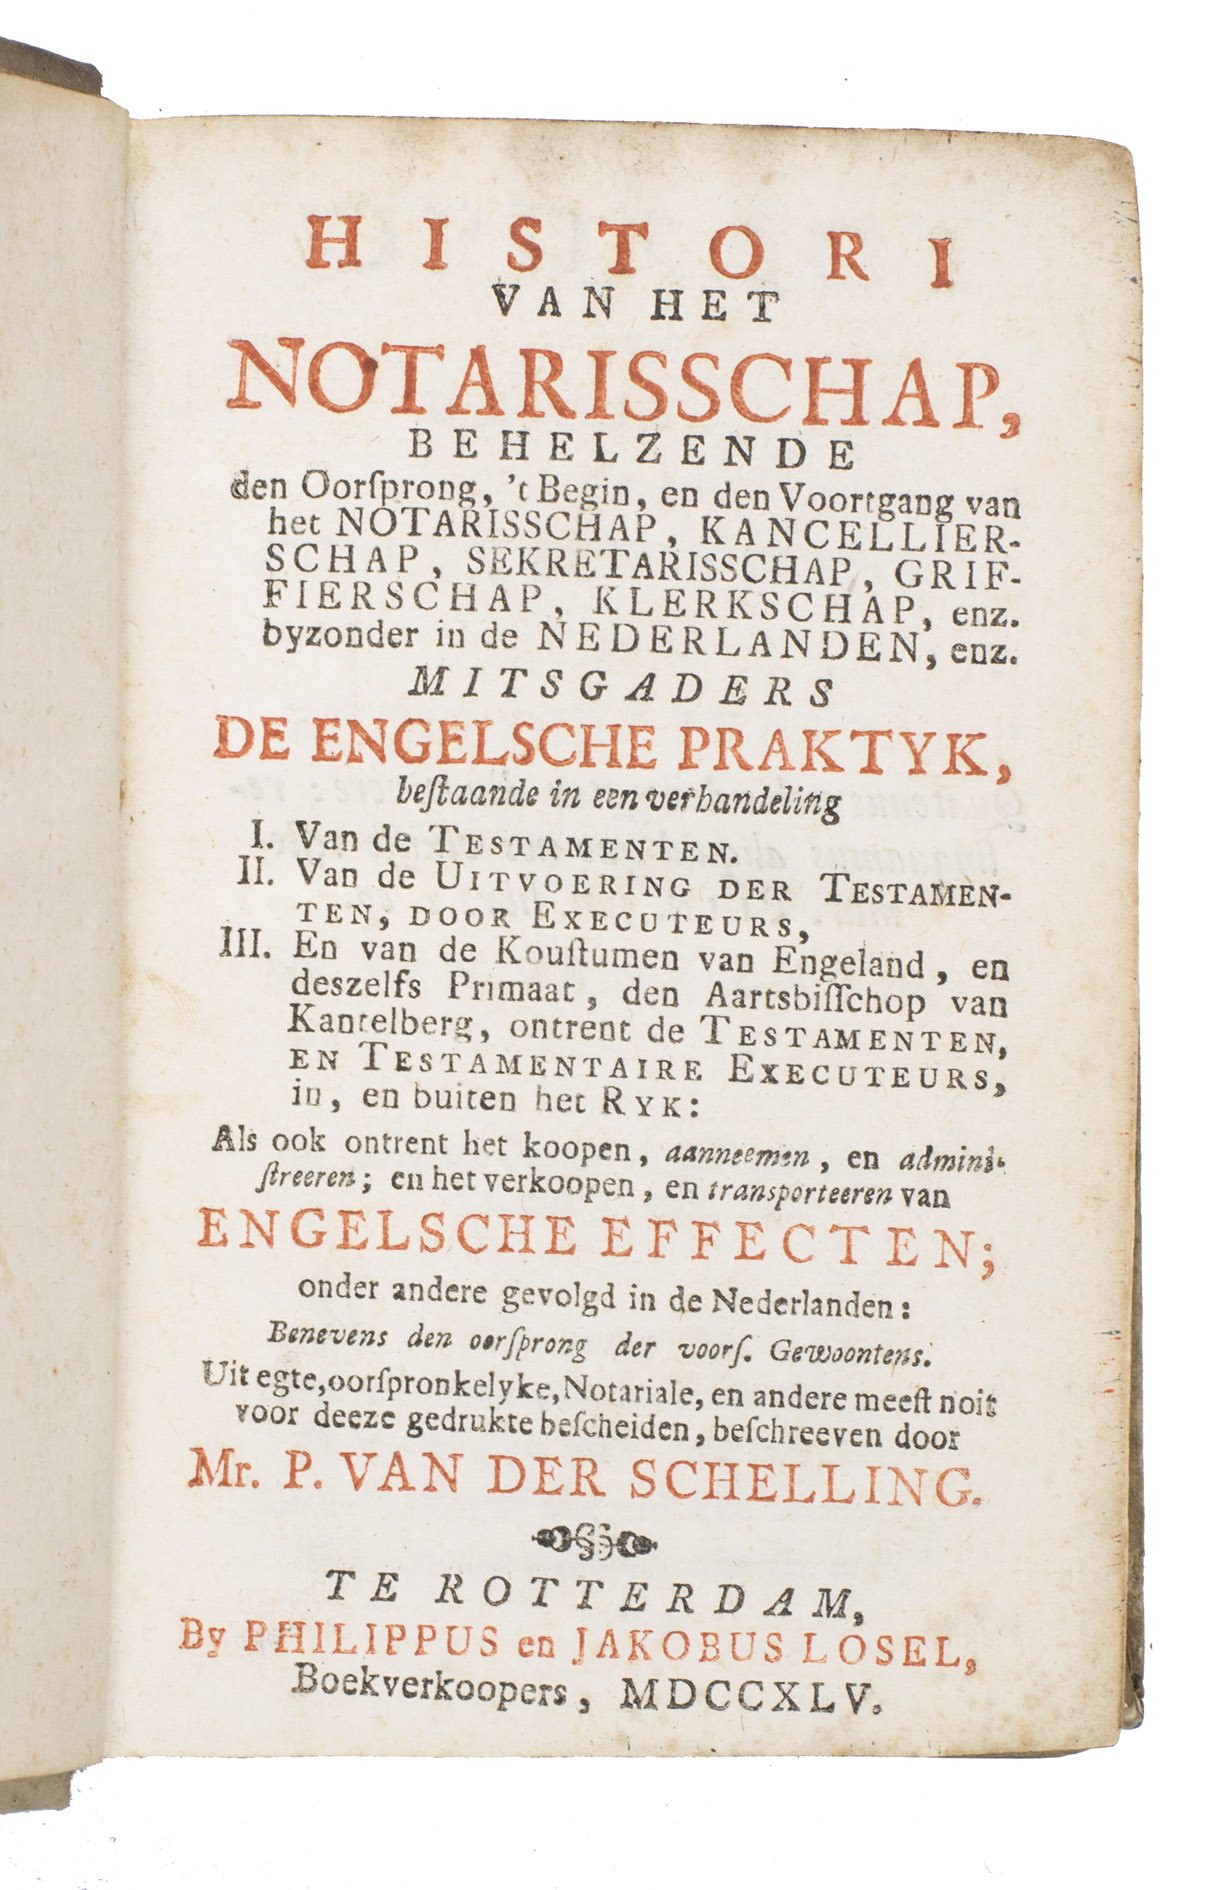 HISTORI
VAN HET
NOTARISSCHAP,
BEHELZENDE
den Oorſprong, 't Begin, en den Voortgang van
het NOTARISSCHAP, KANCELLIER-
SCHAP, SEKRETARISSCHAP, GRIF-
FIERSCHAP, KLERKSCHAP, enz.
byzonder in de NEDERLANDEN, enz.
MITSGADERS
DE ENGELSCHE PRAKTYK,
beſtaande in een verhandeling
I. Van de TESTAMENTEN.
II. Van de UITVOERING DER TESTAMEN-
TEN, DOOR EXECUTEURS,
III. En van de Kouſtumen van Engeland, en
deszelfs Primaat, den Aartsbiſſchop van
Kantelberg, ontrent de TESTAMENTEN,
EN TESTAMENTAIRE EXECUTEURS,
in, en buiten het RYK:
Als ook ontrent het koopen, aanneemen, en admini-
ſtreeren; en het verkoopen, en transporteeren van
ENGELSCHE EFFECTEN;
onder andere gevolgd in de Nederlanden:
Benevens den oorſprong der voorſ. Gewoontens.
Uit egte, oorſpronkelyke, Notariale, en andere meeſt noit
voor deeze gedrukte beſcheiden, beſchreeven door
Mr. P. VAN DER SCHELLING.
TE ROTTERDAM,
By PHILIPPUS en JAKOBUS LOSEL,
Boekverkoopers, MDCCXLV.